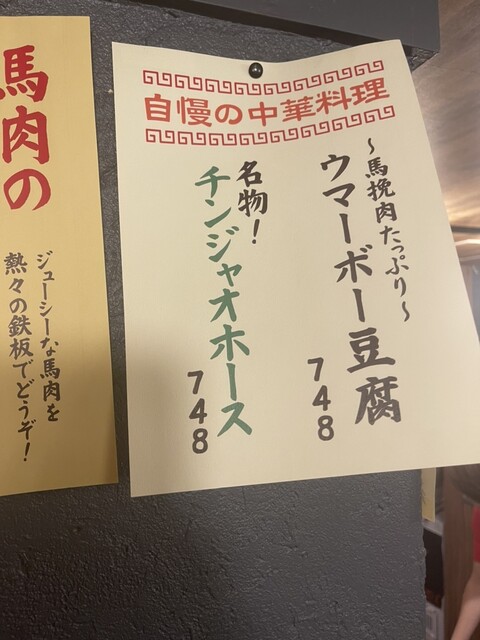 自慢の中華料理
〜馬挽肉たっぷり〜
ウマーボー豆腐
748
名物!
チンジャオホース
748
馬肉の
ジューシーな馬肉を
熱々の鉄板でどうぞ!